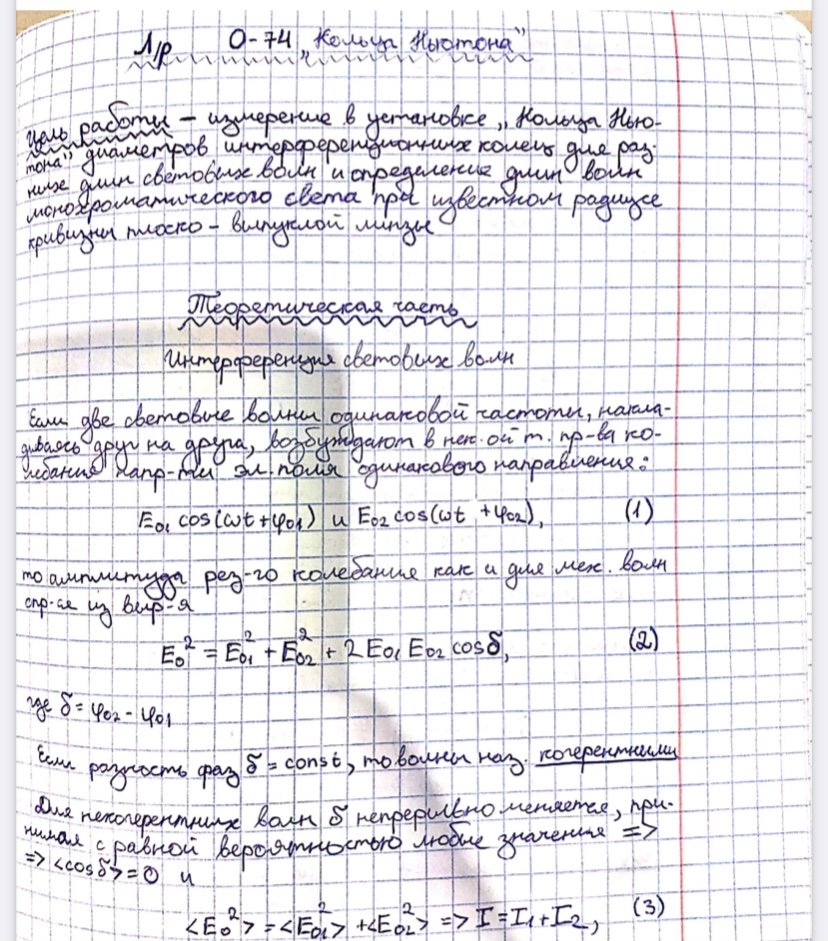 Л/р О-74 „Кольца Ньютона"
Цель работы – измерение в установке „Кольца Нью-
тона" диаметров интерференционных колец для раз-
ных длин световых волн и определение длин волн
монохроматического света при известном радиусе
кривизны плоско – выпуклой линзы
Теоретическая часть
Интерференция световых волн
Если две световые волны одинаковой частоты, накла-
дываясь друг на друга, возбуждают в нек.ой т. пр-ва ко-
лебания напр-ти эл. поля одинакового направления:
E₀₁ cos(ωt+φ₀₁) и E₀₂ cos(ωt +φ₀₂), (1)
то амплитуда рез-го колебания как и для мех. волн
опр-ся из выр-я
E₀² = E₀₁² + E₀₂² + 2E₀₁ E₀₂ cosδ, (2)
где δ = φ₀₂ - φ₀₁
Если разность фаз δ = const, то волны наз. когерентными
Для некогерентных волн δ непрерывно меняется, при-
нимая с равной вероятностью любые значения =>
=> <cosδ> = 0 и
<E₀²> = <E₀₁²> + <E₀₂²> => I = I₁ + I₂, (3)